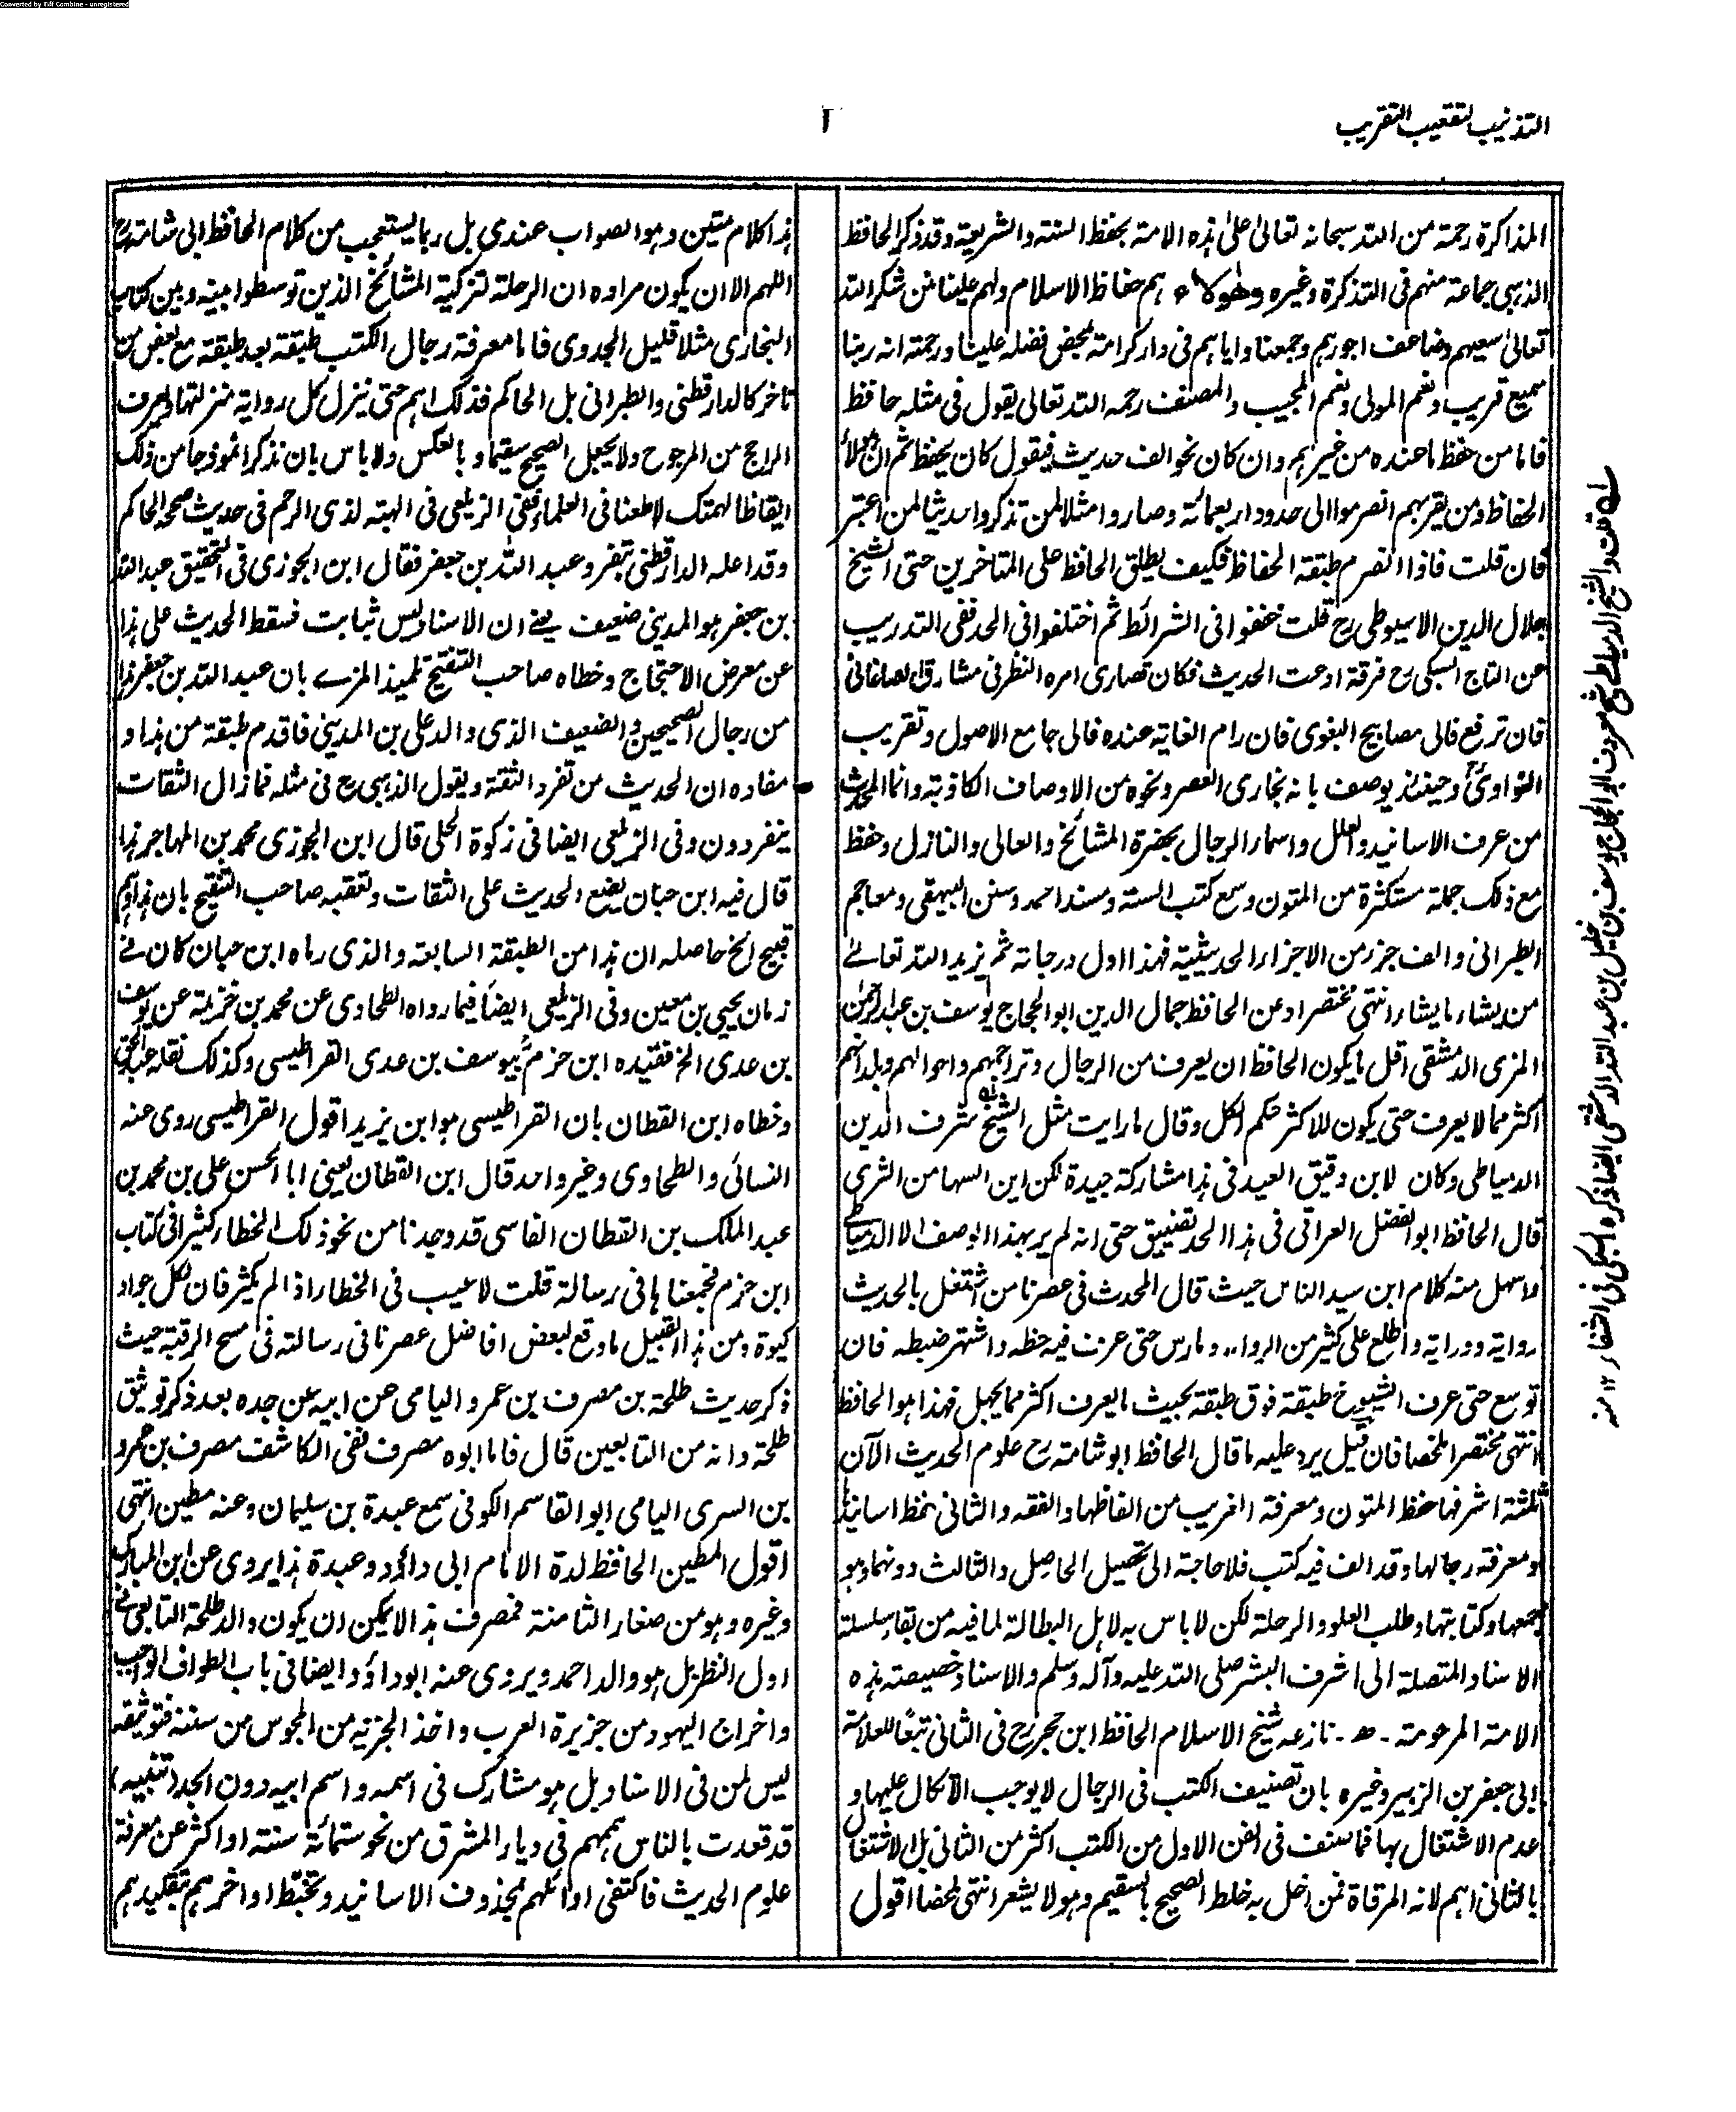 Converted by Tiff Combine - unregistered
التذنيب لتعقيب التقريب
٢
المذاكرة رحمة من الله سبحانه تعالى على هذه الامة بحفظ السنة والشريعة وقد ذكر الحافظ
الذهبى جماعة منهم فى التذكرة وغيره وهؤلاء هم حفاظ الاسلام ولهم علينا من شكر الله
تعالى سعيهم وضاعف اجورهم وجمعنا واياهم فى دار كرامته بمحض فضله علينا ورحمته انه ربنا
سميع قريب ونعم المولى ونعم المجيب والمصنف رحمه الله تعالى يقول فى مثله حافظ
فاما من حفظ ما عنده من غيرهم وان كان نحو الف حديث فيقول كان يحفظ ثم ان هؤلاء
الحفاظ ومن يقربهم انصرموا الى حدود اربعمائة وصاروا مثلا لمن تذكر واحديثا لمن اعتبر
فان قلت فاذا انصرم طبقة الحفاظ فكيف يطلق الحافظ على المتاخرين حتى الشيخ
جلال الدين الاسيوطى رح قلت خففوا فى الشرائط ثم اختلفوا فى الحد ففى التدريب
عن التاج السبكى رح فرقة ادعت الحديث فكان قصارى امره النظر فى مشارق الصاغانى
فان ترفع فالى مصابيح البغوى فان رام الغاية عنده فالى جامع الاصول وتقريب
النواوى وحينئذ يوصف بانه بخارى العصر ونحوه من الاوصاف الكاذبة وانما المحدث
من عرف الاسانيد والعلل واسماء الرجال بحضرة المشائخ والعالى والنازل وحفظ
مع ذلك جملة مستكثرة من المتون وسمع كتب الستة ومسند احمد وسنن البيهقى ومعاجم
الطبرانى والف جزء من الاجزاء الحديثية فهذا اول درجاته ثم يزيد الله تعالى
من يشاء ما يشاء انتهى مختصرا وعن الحافظ جمال الدين ابو الحجاج يوسف بن عبد الرحمن
المزى الدمشقى اقل ما يكون الحافظ ان يعرف من الرجال وتراجمهم واحوالهم وبلدانهم
اكثر مما لا يعرف حتى يكون للاكثر حكم الكل وقال ما رايت مثل الشيخ شرف الدين
الدمياطى وكان لابن دقيق العيد فى هذا مشاركة جيدة لكن اين السها من الثرى
قال الحافظ ابو الفضل العراقى فى هذا الحد تضييق حتى انه لم ير بهذا الوصف الا الدمياطى
واسهل منه كلام ابن سيد الناس حيث قال المحدث فى عصرنا من اشتغل بالحديث
رواية ودراية واطلع على كثير من الرواة ومارس حتى عرف فيه حظه واشتهر ضبطه فان
توسع حتى عرف الشيوخ طبقة فوق طبقة بحيث ما يعرف اكثر مما يجهل فهذا هو الحافظ
انتهى مختصرا ملخصا فان قيل يرد عليه ما قال الحافظ ابو شامة رح علوم الحديث الآن
ثلثة اشرفها حفظ المتون ومعرفة الغريب من الفاظها والفقه والثانى حفظ اسانيدها
ومعرفة رجالها وقد الف فيه كتب فلا حاجة الى تحصيل الحاصل والثالث دونهما وهو
جمعها وكتابتها وطلب العلو والرحلة لكن لا باس به لاهل البطالة لما فيه من بقاء سلسلة
الاسناد المتصلة الى اشرف البشر صلى الله عليه وآله وسلم والاسناد خصيصة هذه
الامة المرحومة - ه - نازعه شيخ الاسلام الحافظ ابن حجر رح فى الثانى تبعًا للعلامة
ابى جعفر بن الزبير وغيره بان تصنيف الكتب فى الرجال لا يوجب الاتكال عليها و
عدم الاشتغال بها فما صنف فى الفن الاول من الكتب اكثر من الثانى بل الاشتغال
بالثانى اهم لانه المرقاة فمن اخل به خلط الصحيح بالسقيم وهو لا يشعر انتهى ملخصا اقول
هذا كلام متين وهو الصواب عندى بل ربما يستعجب من كلام الحافظ ابى شامة رح
اللهم الا ان يكون مراده ان الرحلة لتزكية المشائخ الذين توسطوا بينه وبين كتاب
البخارى مثلا قليل الجدوى فاما معرفة رجال الكتب طبقة بعد طبقة مع بعض من
تاخر كالدارقطنى والطبرانى بل الحاكم فذلك اهم حتى ينزل كل رواية منزلتها ويعرف
الراجح من المرجوح ولا يجعل الصحيح سقيما وبالعكس ولا باس بان نذكر انموذجا من ذلك
ايقاظا لهمتك لا طعنا فى العلماء ففى الزيلعى فى الهبة لذى الرحم فى حديث صححه الحاكم
وقد اعله الدارقطنى بتفرد عبد الله بن جعفر فقال ابن الجوزى فى التحقيق عبد الله
بن جعفر هو المدينى ضعيف يعنى ان الاسناد ليس بثابت فسقط الحديث على هذا
عن معرض الاحتجاج وخطاه صاحب التنقيح تلميذ المزى بان عبد الله بن جعفر هذا
من رجال الصحيحين والضعيف الذى والد على بن المدينى فاقدم طبقة من هذا و
مفاده ان الحديث من تفرد الثقة ويقول الذهبى رح فى مثله فما زال الثقات
ينفردون وفى الزيلعى ايضا فى زكوة الحلى قال ابن الجوزى محمد بن المهاجر هذا
قال فيه ابن حبان يضع الحديث على الثقات وتعقبه صاحب التنقيح بان هذا وهم
قبيح الخ حاصله ان هذا من الطبقة السابعة والذى رماه ابن حبان كان فى
زمان يحيى بن معين وفى الزيلعى ايضًا فيما رواه الطحاوى عن محمد بن خزيمة عن يوسف
بن عدى الخ فقيده ابن حزم بيوسف بن عدى القراطيسى وكذلك نقله عبد الحق
وخطاه ابن القطان بان القراطيسى هو ابن يزيد اقول القراطيسى روى عنه
النسائى والطحاوى وغير واحد قال ابن القطان يعنى ابا الحسن على بن محمد بن
عبد الملك بن القطان الفاسى قد وجدنا من نحو ذلك الخطاء كثيرا فى كتاب
ابن حزم فجمعناها فى رسالة قلت لا عيب فى الخطاء اذا لم يكثر فان لكل جواد
كبوة ومن هذا القبيل ما وقع لبعض افاضل عصرنا فى رسالته فى مسح الرقبة حيث
ذكر حديث طلحة بن مصرف بن عمرو اليامى عن ابيه عن جده بعد ذكر توثيق
طلحة وانه من التابعين قال فاما ابوه مصرف ففى الكاشف مصرف بن عمرو
بن السرى اليامى ابو القاسم الكوفى سمع عبدة بن سليمان وعنه مطين انتهى
اقول المطين الحافظ لدة الامام ابى داؤد وعبدة هذا يروى عن ابن المبارك
وغيره وهو من صغار الثامنة فمصرف هذا لا يمكن ان يكون والد طلحة التابعى فى
اول النظر بل هو والد احمد ويروى عنه ابو داؤد وايضا فى باب الطواف الواجب
واخراج اليهود من جزيرة العرب واخذ الجزية من المجوس من سننه فتوثيقه
ليس لمن فى الاسناد بل هو مشارك فى اسمه واسم ابيه دون الجد (تنبيه)
قد قعدت بالناس هممهم فى ديار المشرق من نحو ستمائة سنة او اكثر عن معرفة
علوم الحديث فاكتفى اوائلهم بحذوف الاسانيد وتخبط اواخرهم بتقليدهم
قلت والشيخ الدمياطى شيخ معروف ابو الحجاج يوسف بن خليل بن عبد الله الدمشقى ايضا ذكره السبكى فى الشفاء ١٢ منه